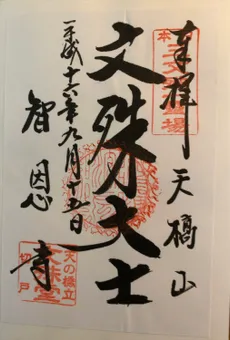 奉拝 天橋山
文殊大士
平成十六年九月十五日
智恩寺
天の橋立
文殊堂
切戸